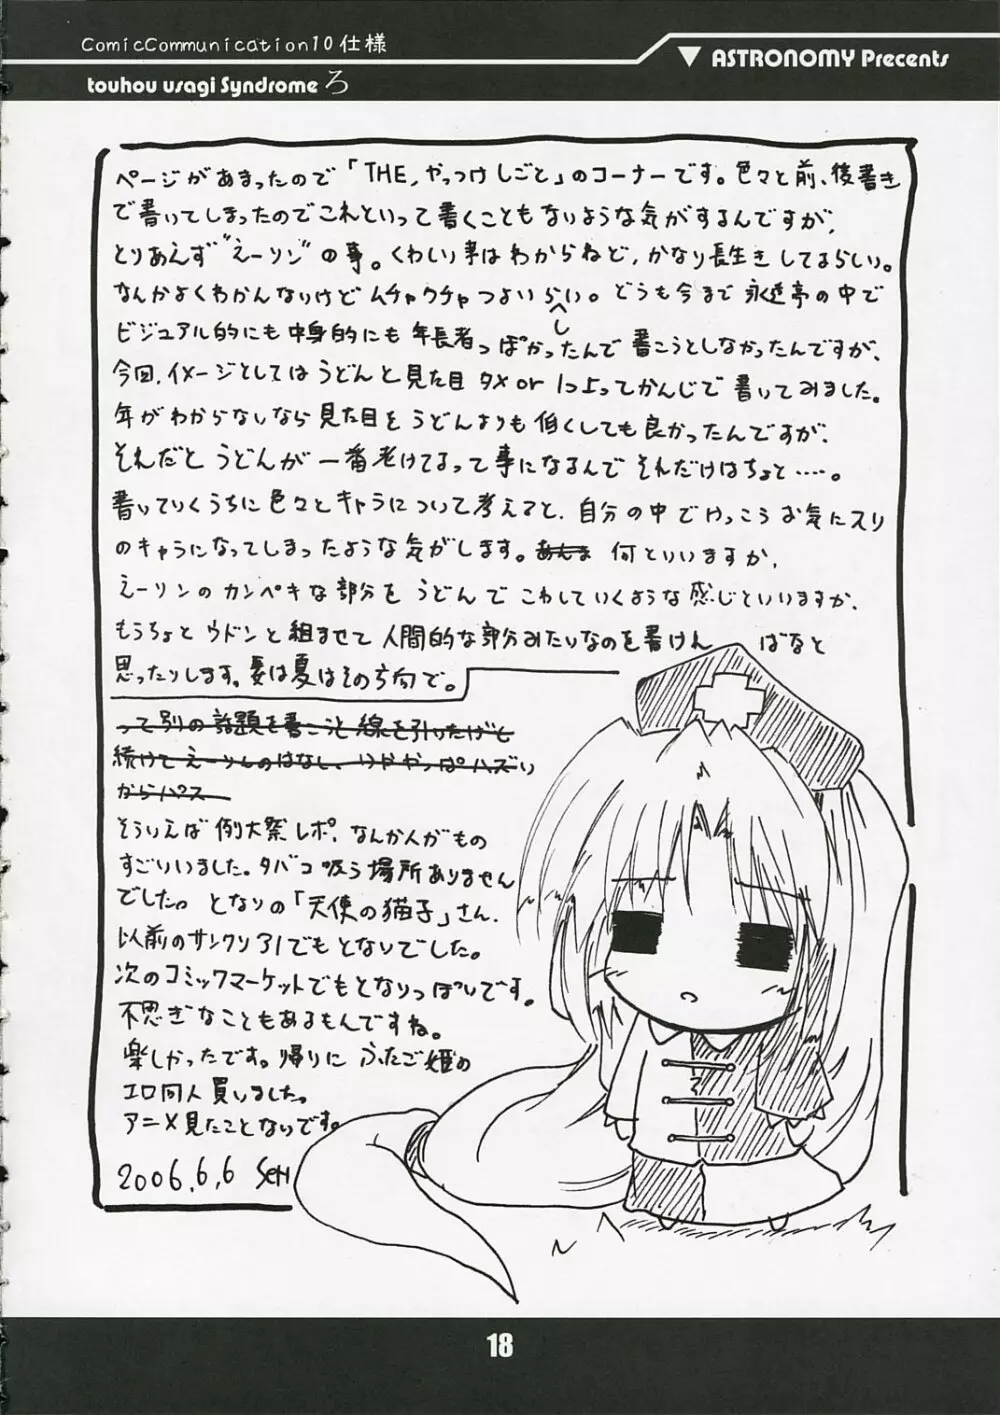 ComicCommunication10仕様
touhou usagi Syndrome ろ
▼ ASTRONOMY Precents
ページがあまったので「THE,やっつけしごと」のコーナーです。色々と前、後書き
で書いてしまったのでこれといって書くこともないような気がするんですが、
とりあえず"えーリン"の事。くわしい事はわからねど、かなり長生きしてるらしい。
なんかよくわかんないけどムチャクチャつよいらしい。どうも今まで永遠亭の中で
ビジュアル的にも中身的にも年長者っぽかったんで書こうとしなかったんですが、
今回、イメージとしてはうどんと見た目タメor 1つ上ってかんじで書いてみました。
年がわからないなら見た目をうどんよりも低くしても良かったんですが、
それだとうどんが一番老けてるって事になるんでそれだけはちょと……。
書いていくうちに色々とキャラについて考えてると、自分の中でけっこうお気にスリ
のキャラになってしまったような気がします。何といいますか、
えーリンのカンペキな部分をうどんでこわしていくような感じといいますか、
もうちょとウドンと組ませて人間的な部分みたいなのを書けん ばなと
思ったりします。夏はその方向で。
って別の話題を書こうと線を引いたけど
続けてえーりんのはなし、いややっぱハズい
からパス
そういえば例大祭レポ、なんか人がもの
すごいいました。タバコ吸う場所ありません
でした。となりの「天使の猫子」さん、
以前のサンクリ31でもとなりでした。
次のコミックマーケットでもとなりっぽいです。
不思ぎなこともあるもんですね。
楽しかったです。帰りにふたご姫の
エロ同人買いました。
アニメ見たことないです。
2006.6.6
18